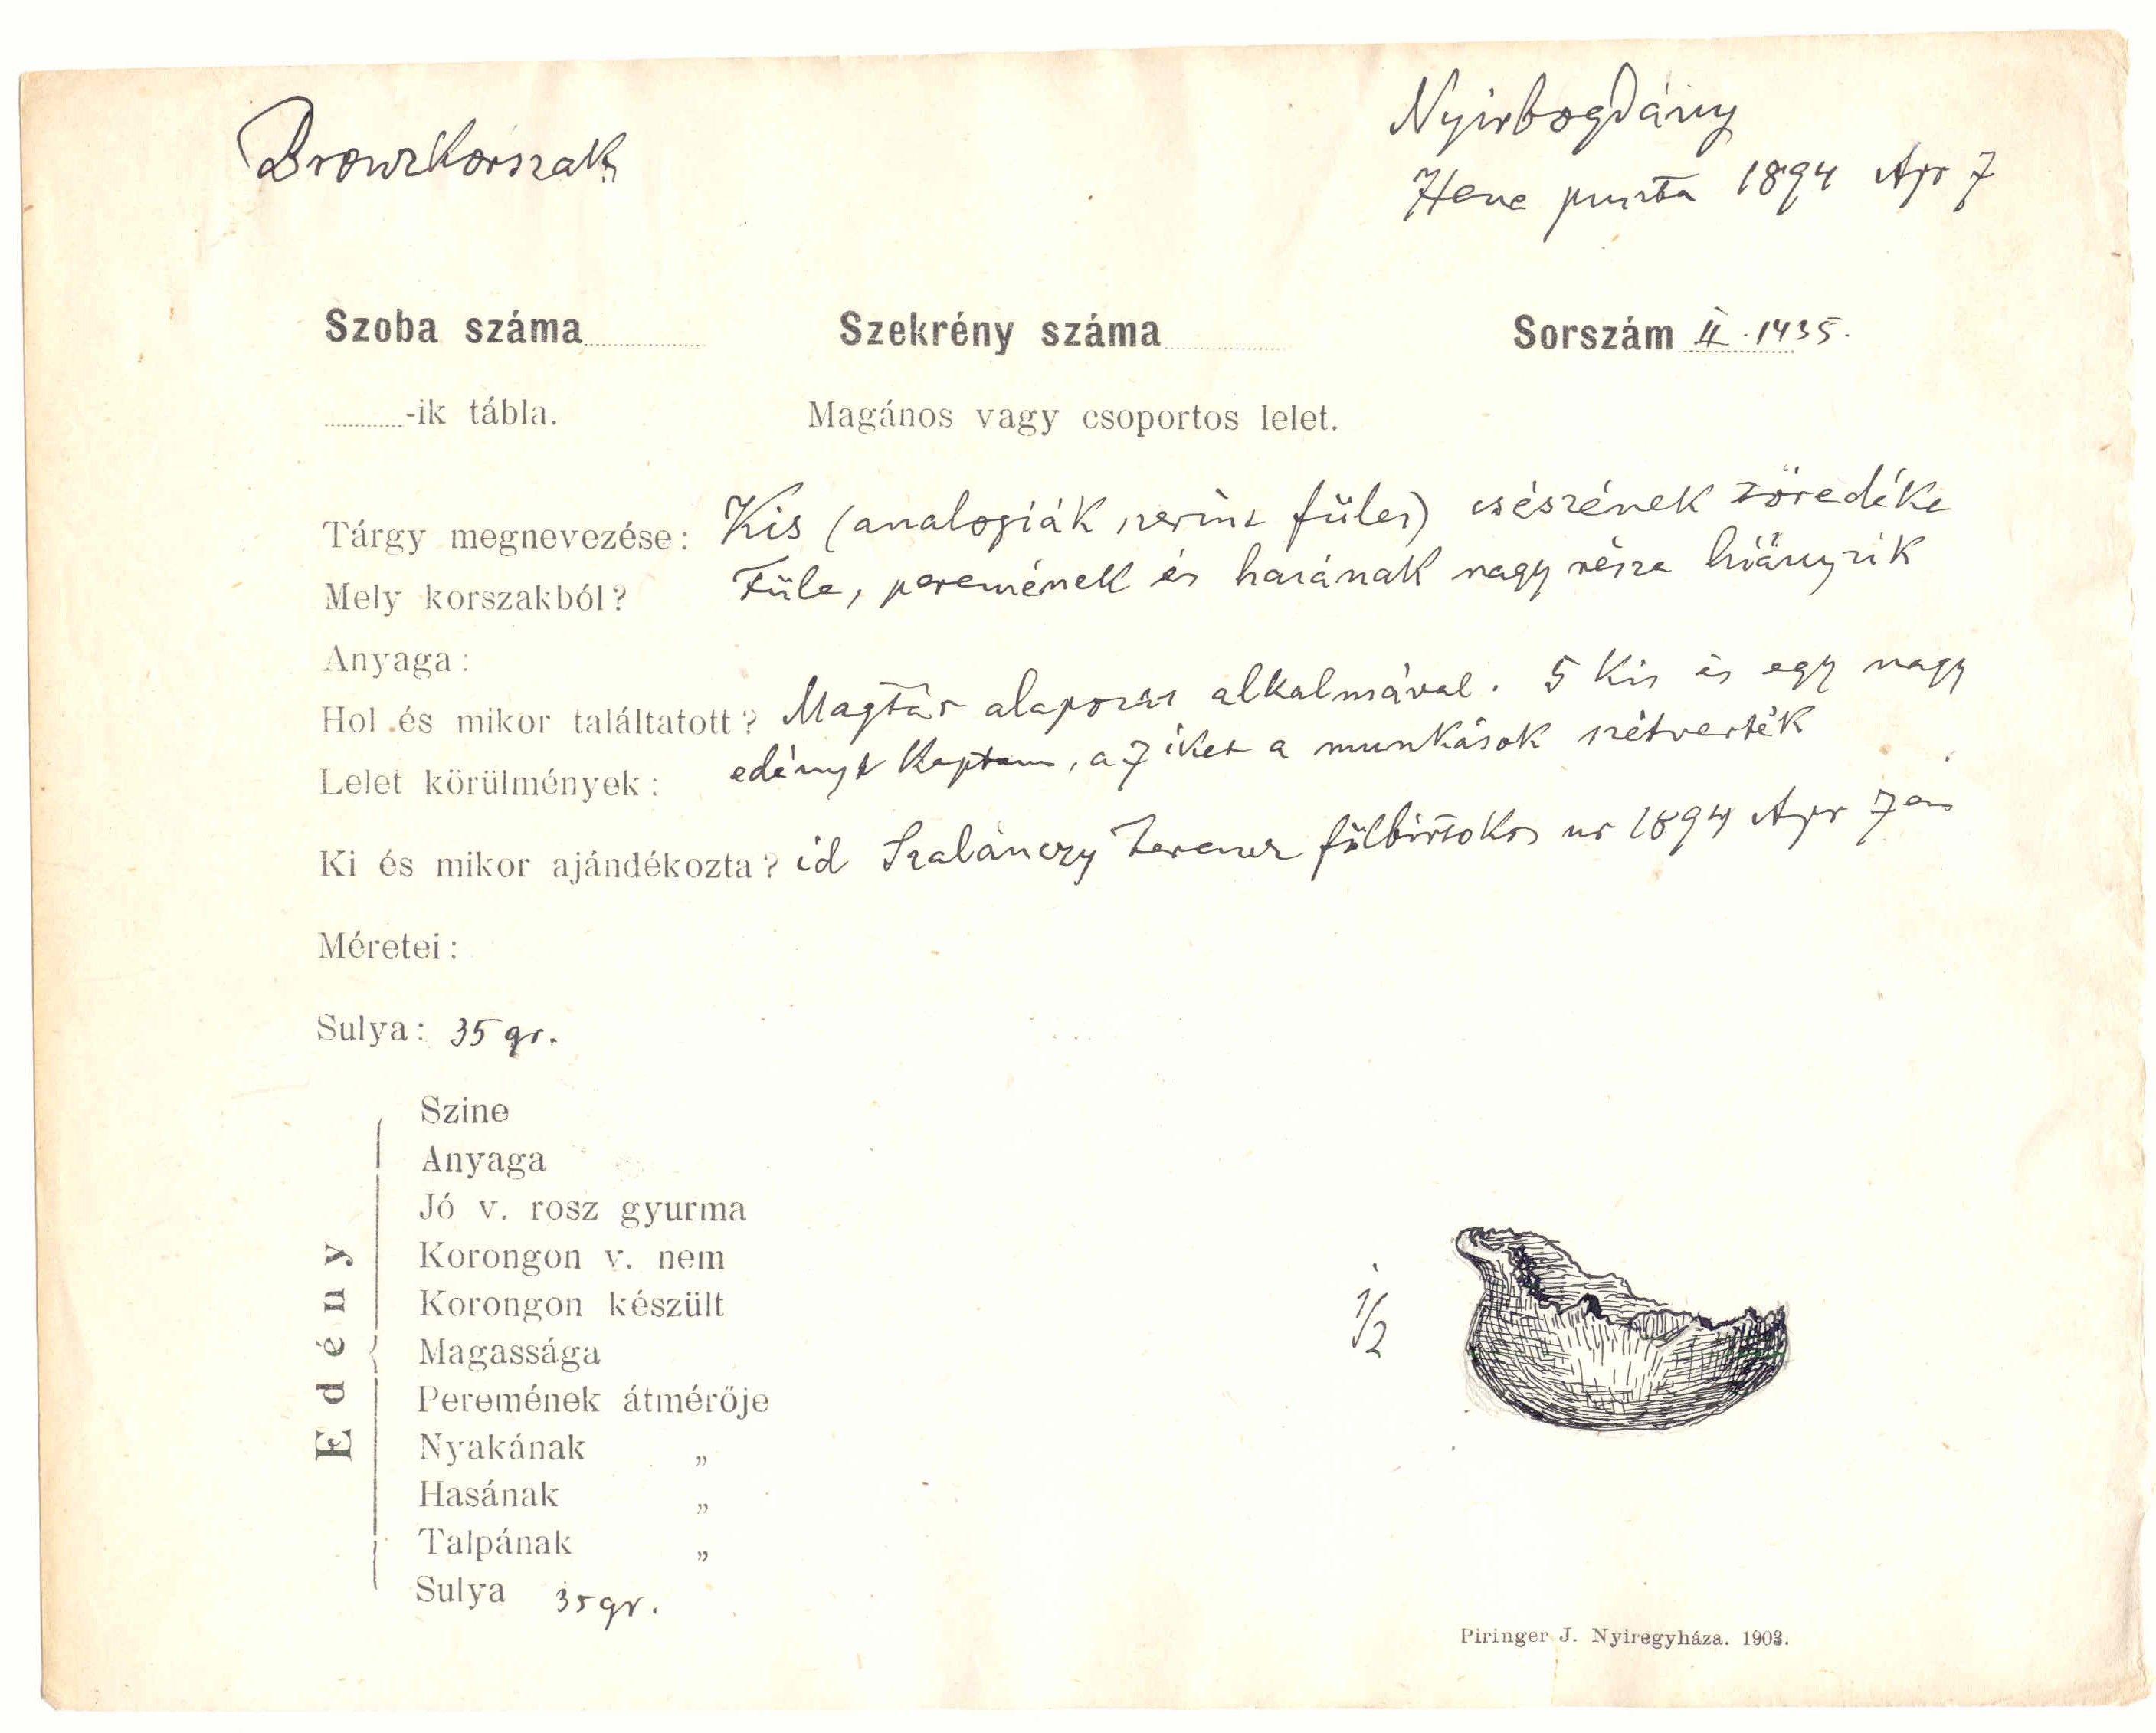 Bronzkorszak
Nyirbogdány
Hene puszta 1894 Apr 7
Szoba száma Szekrény száma Sorszám II. 1435.
-ik tábla. Magános vagy csoportos lelet.
Tárgy megnevezése: Kis (analogiák szerint füles) csészének töredéke
Mely korszakból? Füle, peremének és hasának nagy része hiányzik
Anyaga:
Hol és mikor találtatott? Magtár alapozás alkalmával. 5 kis és egy nagy
Lelet körülmények: edényt kaptam, a 7 iket a munkások szétverték
Ki és mikor ajándékozta? id Szalánczy Ferencz földbirtokos ur 1894 Apr 7 én
Méretei:
Sulya: 35 gr.
Edény
Szine
Anyaga
Jó v. rosz gyurma
Korongon v. nem
Korongon készült
Magassága
Peremének átmérője
Nyakának „
Hasának „
Talpának „
Sulya 35 gr.
1/2
Piringer J. Nyiregyháza. 1903.